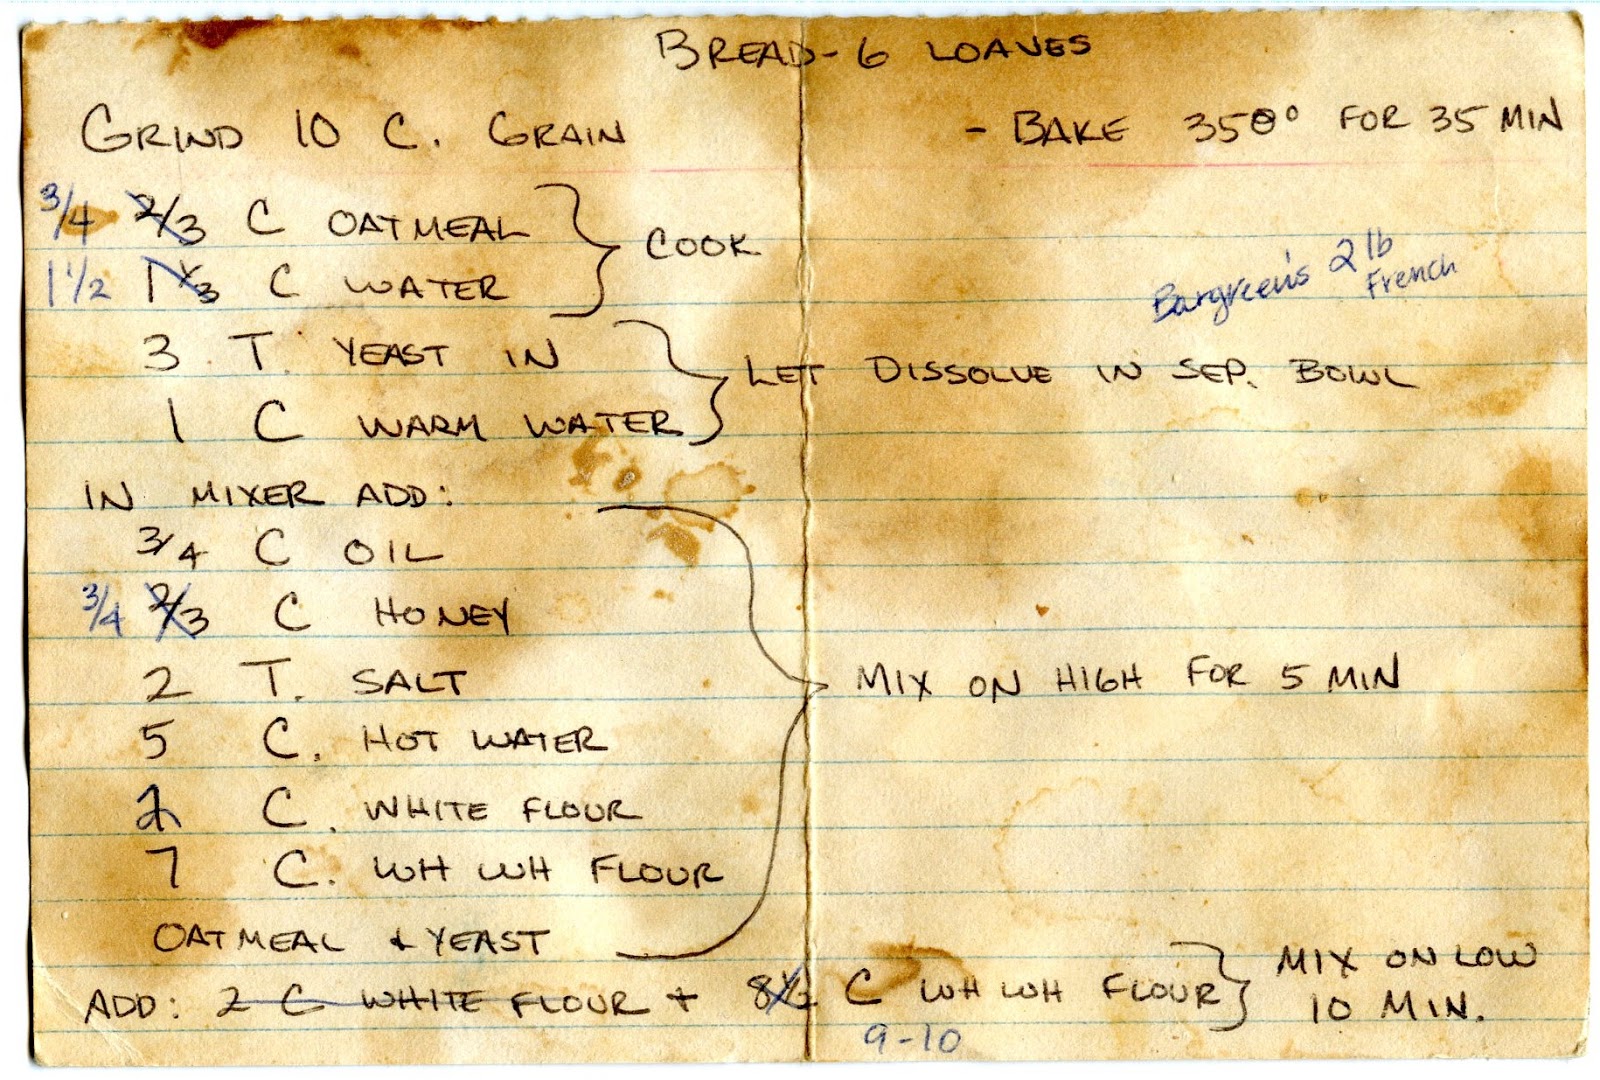 BREAD - 6 LOAVES
GRIND 10 C. GRAIN
- BAKE 350° FOR 35 MIN
3/4 2/3 C OATMEAL
1 1/2 1 1/3 C WATER
COOK
Bargreen's 2 lb
French
3 T. YEAST IN
1 C WARM WATER
LET DISSOLVE IN SEP. BOWL
IN MIXER ADD:
3/4 C OIL
3/4 2/3 C HONEY
2 T. SALT
5 C. HOT WATER
C. WHITE FLOUR
7 C. WH WH FLOUR
OATMEAL & YEAST
MIX ON HIGH FOR 5 MIN
ADD: 2 C WHITE FLOUR + 8 1/2 C WH WH FLOUR
9-10
MIX ON LOW
10 MIN.